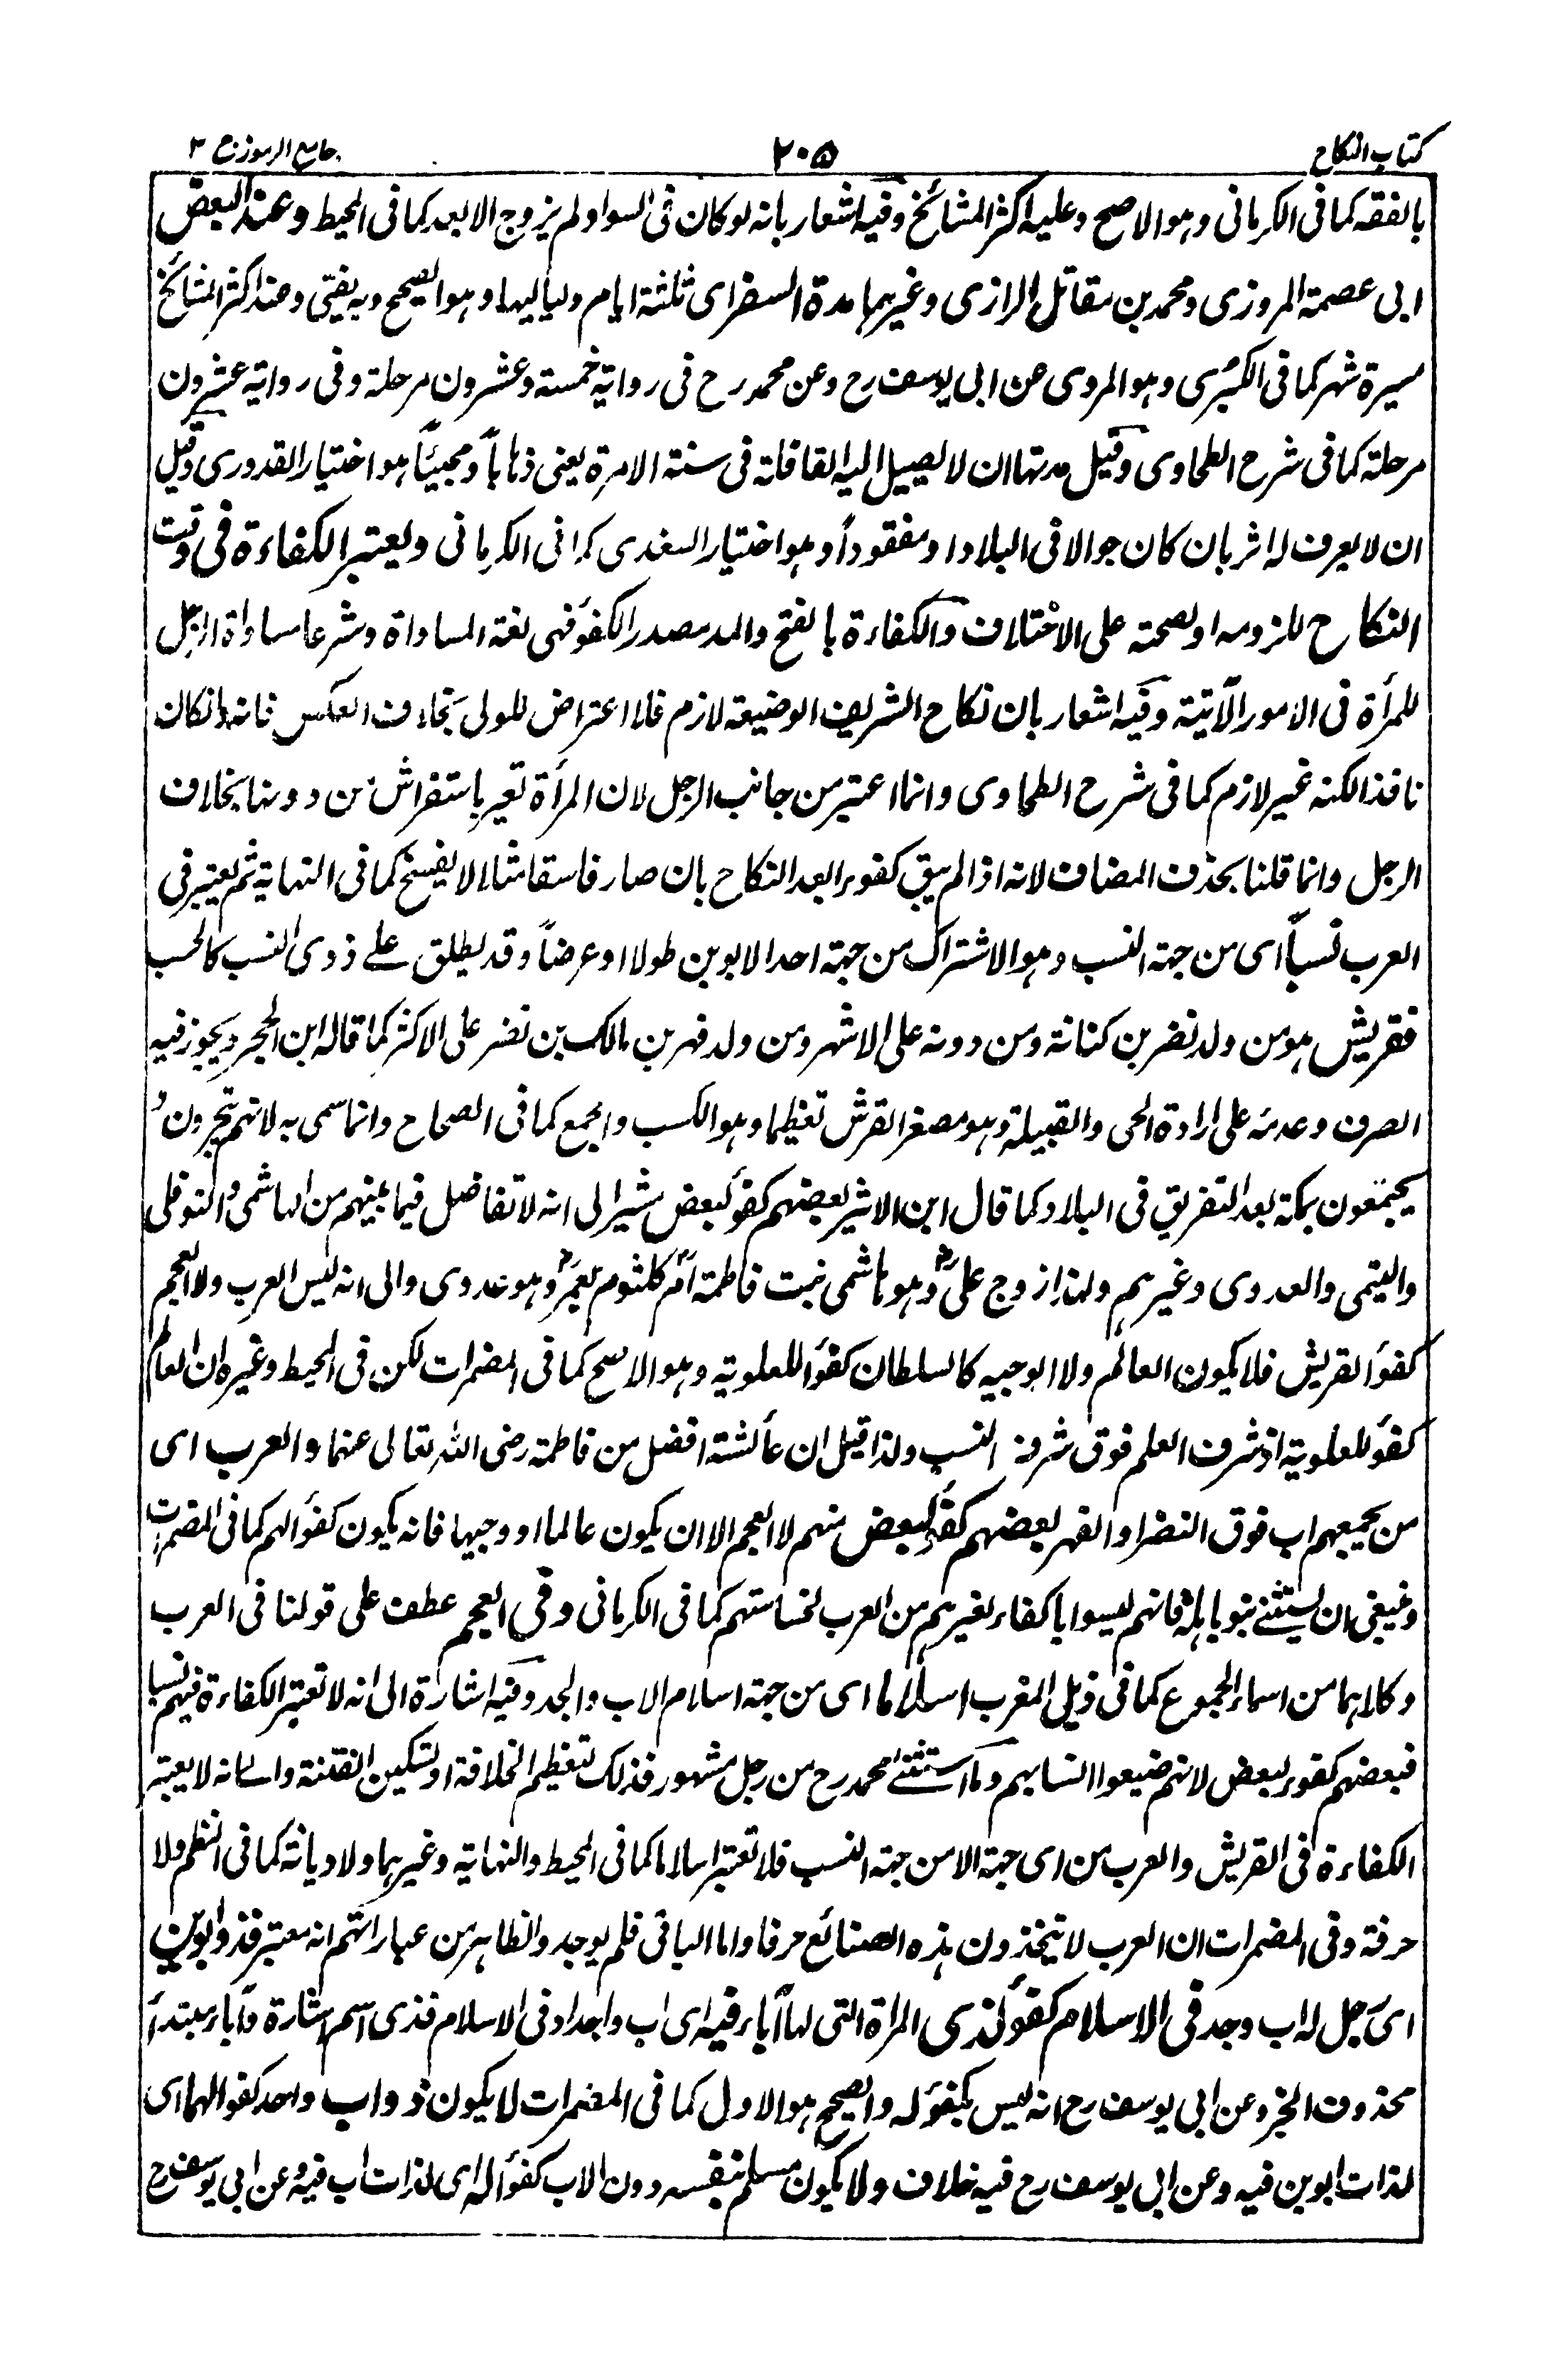 كتاب النكاح
٢٠٥
جامع الرموز ج ٢
بالفقه كما فى الكرمانى وهو الاصح وعليه اكثر المشائخ وفيه اشعار بانه لو كان فى السواد لم يزوج الابعد كما فى المحيط وعند البعض
ابى عصمة المروزى ومحمد بن مقاتل الرازى وغيرهما مدة السفر اى ثلثة ايام ولياليها وهو الصحيح وبه يفتى وعند اكثر المشائخ
مسيرة شهر كما فى الكبرى وهو المروى عن ابى يوسف رح وعن محمد رح فى رواية خمسة وعشرون مرحلة وفى رواية عشرون
مرحلة كما فى شرح الطحاوى وقيل مدتها ان لا يصل اليه القافلة فى سنة الا مرة يعنى ذهاباً ومجيئاً هو اختيار القدورى وقيل
ان لا يعرف له اثر بان كان جوالا فى البلاد او مفقوداً وهو اختيار السغدى كما فى الكرمانى ويعتبر الكفاءة فى وقت
النكاح للزومه او لصحته على الاختلاف والكفاءة بالفتح والمد مصدر الكفؤ فهى لغة المساواة وشرعا مساواة الرجل
للمرأة فى الامور الآتية وفيه اشعار بان نكاح الشريف الوضيعة لازم فلا اعتراض للولى بخلاف العكس فانه وانكان
نافذا لكنه غير لازم كما فى شرح الطحاوى وانما اعتبر من جانب الرجل لان المرأة تعير باستفراش من دونها بخلاف
الرجل وانما قلنا بحذف المضاف لانه اذا لم يبق كفوء ابعد النكاح بان صار فاسقا مثلا لا يفسخ كما فى النهاية ثم يعتبر فى
العرب نسباً اى من جهة النسب وهو الاشتراك من جهة احد الابوين طولا او عرضاً وقد يطلق علے ذوى النسب كالحسب
فقريش هو من ولد نضر بن كنانة ومن دونه على الاشهر ومن ولد فهر بن مالك بن نضر على الاكثر كما قاله ابن الحجر ويجوز فيه
الصرف وعدمه على ارادة الحى والقبيلة وهو مصغر القرش تعظيما وهو الكسب والجمع كما فى الصحاح وانما سمى به لانهم يتجرون و
يجتمعون بمكة بعد التفريق فى البلاد كما قال ابن الاثير بعضهم كفؤ لبعض مشير الى انه لا تفاضل فيما بينهم من الهاشمى والنوفلى
والتيمى والعدوى وغيرهم ولهذا زوج على رض وهو هاشمى بنت فاطمة ام كلثوم لعمر رض وهو عدوى والى انه ليس العرب ولا العجم
كفؤا لقريش فلا يكون العالم ولا الوجيه كالسلطان كفؤا للعلوية وهو الاصح كما فى المضمرات لكن فى المحيط وغيره ان العالم
كفؤ للعلوية اذ شرف العلم فوق شرف النسب ولذا قيل ان عائشة افضل من فاطمة رضى الله تعالى عنهما والعرب اى
من يجمعهم اب فوق النضر او الفهر بعضهم كفؤ لبعض منهم لا العجم الا ان يكون عالما او وجيها فانه يكون كفؤا لهم كما فى المضمرات
وينبغى ان يستثنے بنو باهلة فانهم ليسوا باكفاء لغيرهم من العرب لخساستهم كما فى الكرمانى وفى العجم عطف على قولنا فى العرب
وكلاهما من اسماء الجموع كما فى ذيل المغرب اسلاما اى من جهة اسلام الاب والجد وفيه اشارة الى انه لا تعتبر الكفاءة فيهم نسبا
فبعضهم كفوء لبعض لانهم ضيعوا انسابهم وما استثنے محمد رح من رجل مشهور فذلك لتعظيم الخلافة او لتسكين الفتنة وا انه لا يعتبر
الكفاءة فى القريش والعرب من اى جهة الا من جهة النسب فلا تعتبر اسلاما كما فى المحيط والنهاية وغيرهما ولا ديانة كما فى النظم ولا
حرفة وفى المضمرات ان العرب لا يتخذون هذه الصنائع حرفا واما الباقى فلم يوجد والظاهر من عباراتهم انه معتبر فذو ابوين
اى رجل له اب وجد فى الاسلام كفؤ لذى المرأة التى لها آباء فيه اى اب واجداد فى الاسلام فذى اسم اشارة وآباء مبتدأ
محذوف الخبر وعن ابى يوسف رح انه ليس بكفؤ له والصحيح هو الاول كما فى المضمرات لا يكون ذو اب واحد كفوا لهما اى
لذات ابوين فيه وعن ابى يوسف رح فيه خلاف ولا يكون مسلم بنفسه دون الاب كفؤا له اى لذات اب فيه وعن ابى يوسف رح